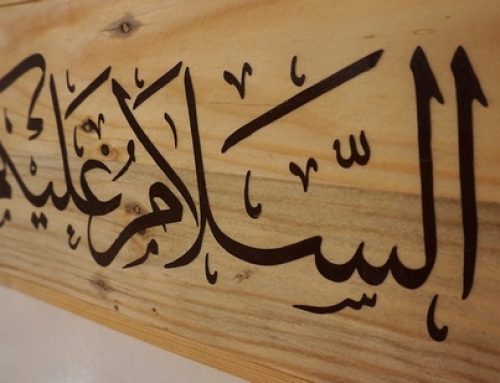 السَّلَامُ عَلَيْكم